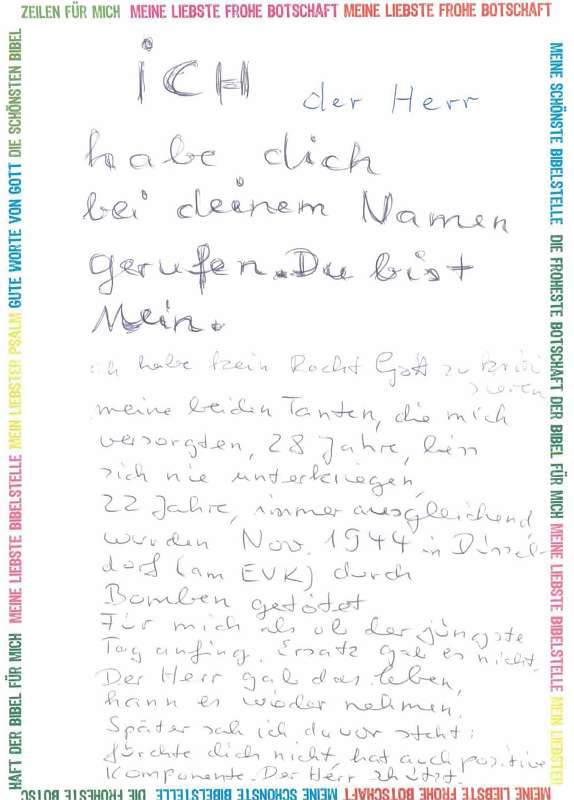 ZEILEN FÜR MICH MEINE LIEBSTE FROHE BOTSCHAFT MEINE LIEBSTE FROHE BOTSCHAFT
HAFT DER BIBEL FÜR MICH MEINE LIEBSTE BIBELSTELLE MEIN LIEBSTER PSALM GUTE WORTE VON GOTT DIE SCHÖNSTEN BIBEL
MEINE SCHÖNSTE BIBELSTELLE DIE FROHESTE BOTSCHAFT DER BIBEL FÜR MICH MEINE LIEBSTE BIBELSTELLE MEIN LIEBSTER
iCH der Herr
habe dich
bei deinem Namen
gerufen. Du bist
Mein.
ich habe kein Recht Gott zu kriti
sieren
meine beiden Tanten, die mich
versorgten, 28 Jahre, liess
sich nie unterkriegen,
22 Jahre, immer ausgleichend
wurden Nov. 1944 in Düssel-
dorf (am EVK) durch
Bomben getötet
Für mich als ob der jüngste
Tag anfing. Ersatz gab es nicht.
Der Herr gab das Leben,
kann es wieder nehmen.
Später sah ich davor steht:
fürchte dich nicht, hat auch positive
Komponente. Der Herr schützt.
DIE FROHESTE BOTSC MEINE SCHÖNSTE BIBELSTELLE MEINE LIEBSTE FROHE BOTSCHAFT